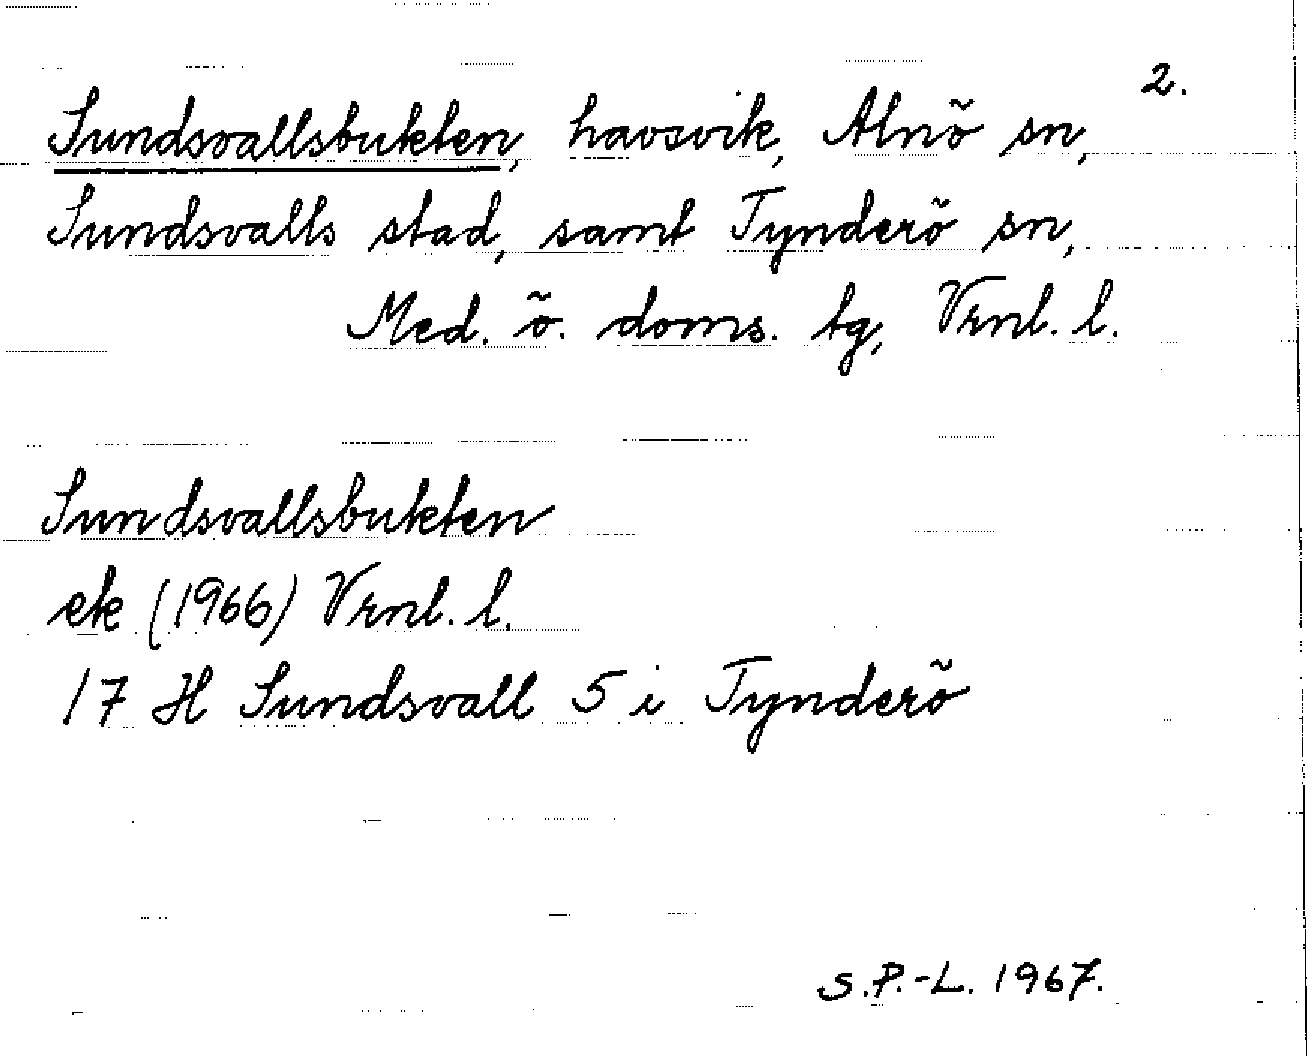 2.
Sundsvallsbukten, havsvik, Alnö sn,
Sundsvalls stad, samt Tynderö sn,
Med. ö. doms. tg, Vrnl. l.
Sundsvallsbukten
ek (1966) Vrnl. l.
17 H Sundsvall 5 i Tynderö
S.P.-L. 1967.